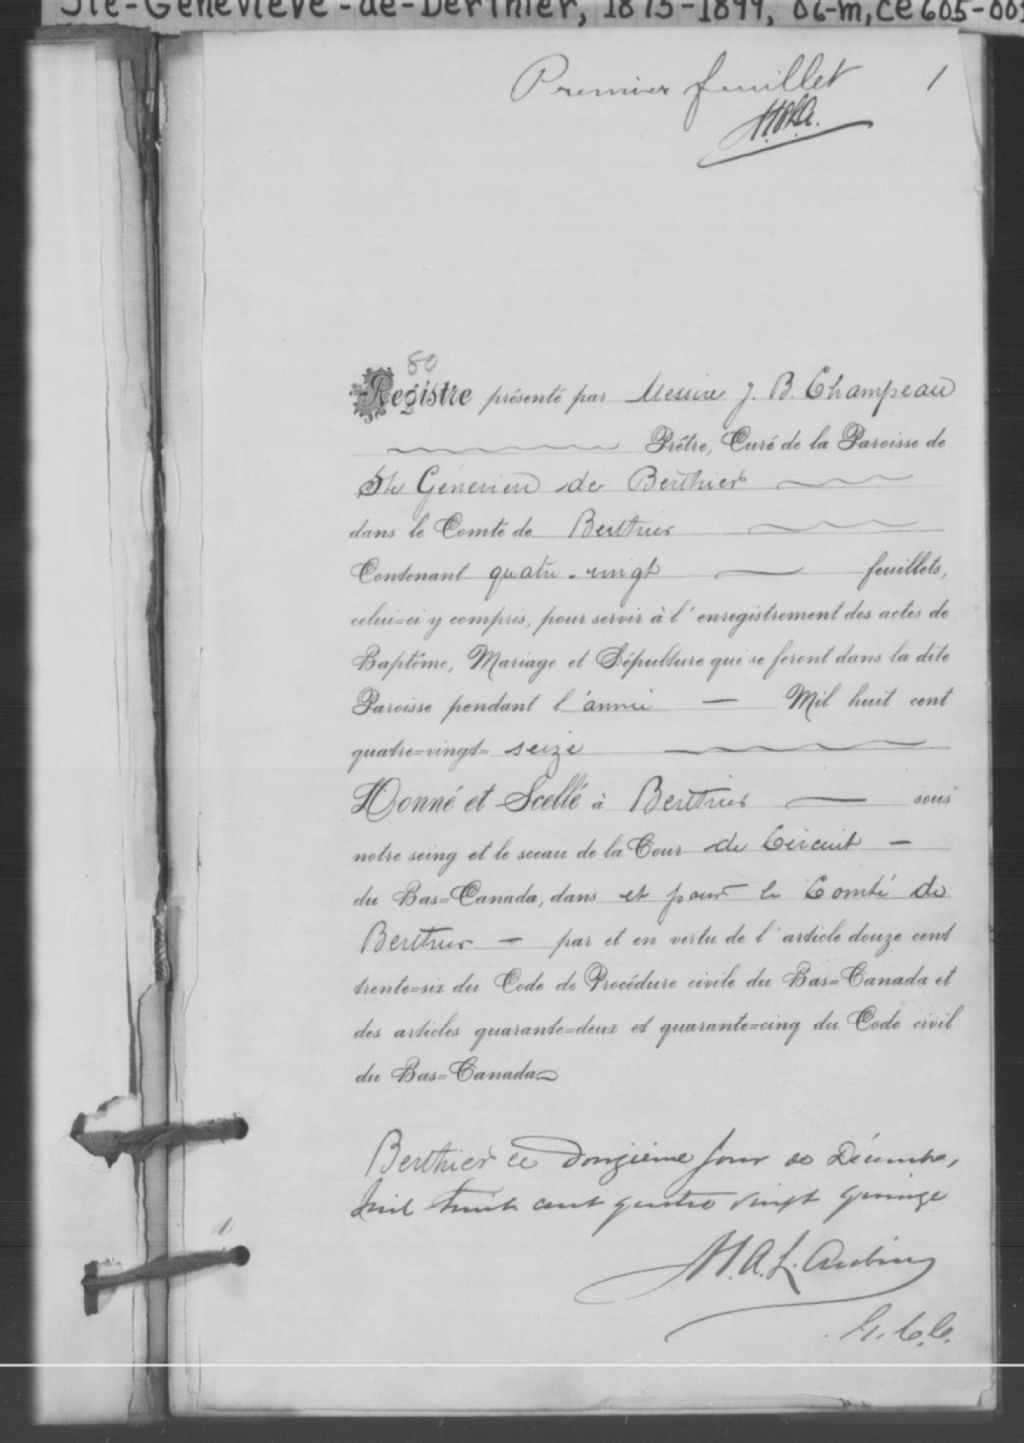 Ste-Geneviève-de-Berthier, 1875-1899, 06-m, ce605-00
Premier feuillet 1
80
Registre présenté par Messire J. B. Champeau
Prêtre, Curé de la Paroisse de
Ste Geneviève de Berthier
dans le Comté de Berthier
Contenant quatre-vingt feuillets,
celui=ci y compris, pour servir à l'enregistrement des actes de
Baptême, Mariage et Sépulture qui se feront dans la dite
Paroisse pendant l'année — Mil huit cent
quatre=vingt= seize
Donné et Scellé à Berthier — sous
notre seing et le sceau de la Cour de Circuit —
du Bas=Canada, dans et pour le Comté de
Berthier — par et en vertu de l'article douze cent
trente=six du Code de Procédure civile du Bas=Canada et
des articles quarante=deux et quarante=cinq du Code civil
du Bas=Canada
Berthier ce douzième jour de Décembre,
mil huit cent quatre vingt quinze
A. L. Aubin
G. C. C.